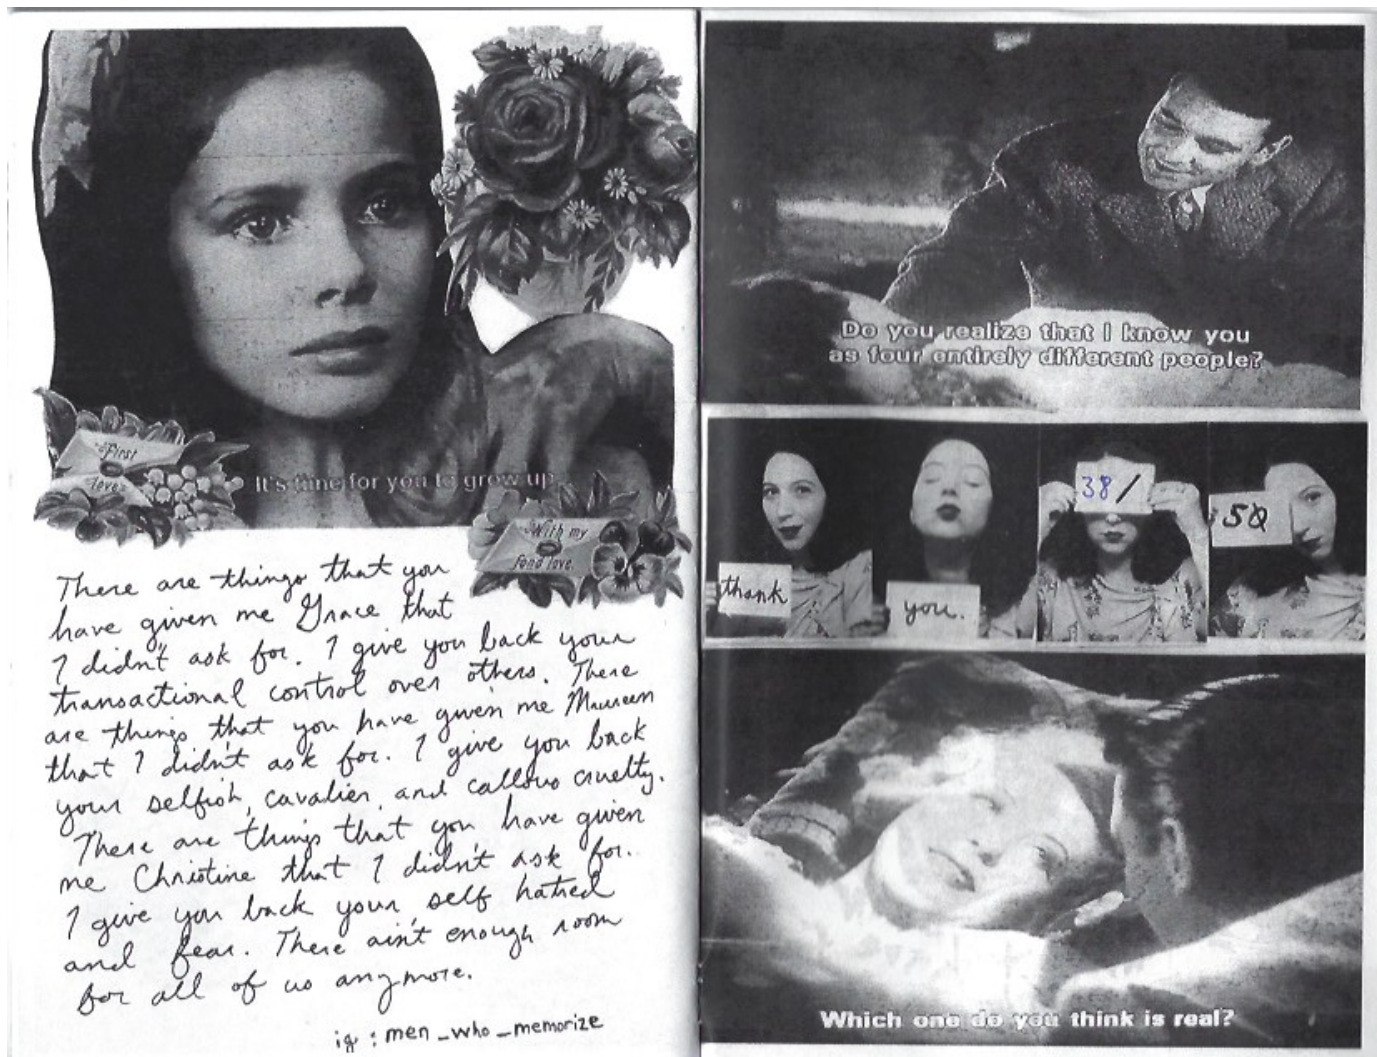 First
love
It's time for you to grow up
With my
fond love
There are things that you
have given me Grace that
I didn't ask for. I give you back your
transactional control over others. There
are things that you have given me Maureen
that I didn't ask for. I give you back
your selfish, cavalier, and callous cruelty.
There are things that you have given
me Christine that I didn't ask for.
I give you back your self hatred
and fear. There ain't enough room
for all of us anymore.
ig: men_who_memorize
Do you realize that I know you
as four entirely different people?
thank
you.
38/
50
Which one do you think is real?